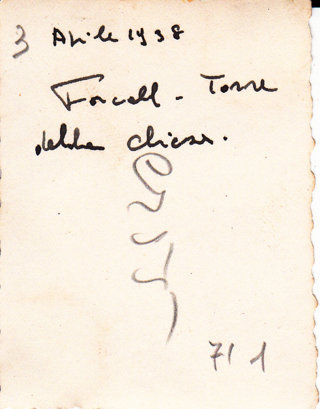 3 Aprile 1938
Forcall - Torre
della chiesa.
71 1